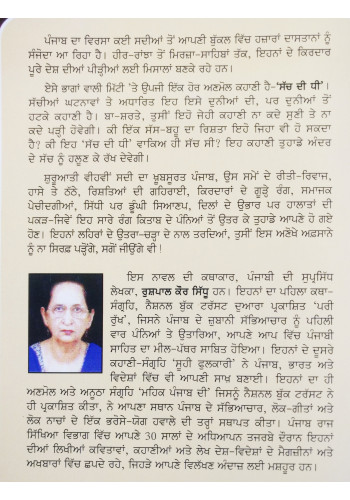 ਪੰਜਾਬ ਦਾ ਵਿਰਸਾ ਕਈ ਸਦੀਆਂ ਤੋਂ ਆਪਣੀ ਬੁੱਕਲ ਵਿੱਚ ਹਜ਼ਾਰਾਂ ਦਾਸਤਾਨਾਂ ਨੂੰ
ਸੰਜੋਦਾ ਆ ਰਿਹਾ ਹੈ। ਹੀਰ-ਰਾਂਝਾ ਤੋਂ ਮਿਰਜ਼ਾ-ਸਾਹਿਬਾਂ ਤੱਕ, ਇਹਨਾਂ ਦੇ ਕਿਰਦਾਰ
ਪੂਰੇ ਦੇਸ਼ ਦੀਆਂ ਪੀੜ੍ਹੀਆਂ ਲਈ ਮਿਸਾਲਾਂ ਬਣਕੇ ਰਹੇ ਹਨ।
ਏਸੇ ਭਾਗਾਂ ਵਾਲੀ ਮਿੱਟੀ 'ਤੇ ਉਪਜੀ ਇੱਕ ਹੋਰ ਅਣਮੋਲ ਕਹਾਣੀ ਹੈ-'ਸੱਚ ਦੀ ਧੀ'।
ਸੱਚੀਆਂ ਘਟਨਾਵਾਂ ਤੇ ਅਧਾਰਿਤ ਇਹ ਇਸੇ ਦੁਨੀਆਂ ਦੀ, ਪਰ ਦੁਨੀਆਂ ਤੋਂ
ਹਟਕੇ ਕਹਾਣੀ ਹੈ। ਬਾ-ਸ਼ਰਤੇ, ਤੁਸੀਂ ਇਹੋ ਜੇਹੀ ਕਹਾਣੀ ਨਾ ਕਦੇ ਸੁਣੀ ਤੇ ਨਾ
ਕਦੇ ਪੜ੍ਹੀ ਹੋਵੇਗੀ। ਕੀ ਇੱਕ ਸੱਸ-ਬਹੂ ਦਾ ਰਿਸ਼ਤਾ ਇਹੋ ਜਿਹਾ ਵੀ ਹੋ ਸਕਦਾ
ਹੈ? ਕੀ ਇਹ 'ਸੱਚ ਦੀ ਧੀ' ਵਾਕਿਅ ਹੀ ਸੱਚ ਸੀ? ਇਹ ਕਹਾਣੀ ਤੁਹਾਡੇ ਅੰਦਰ
ਦੇ ਸੱਚ ਨੂੰ ਹਲੂਣ ਕੇ ਰੱਖ ਦੇਵੇਗੀ।
ਸ਼ੁਰੂਆਤੀ ਵੀਹਵੀਂ ਸਦੀ ਦਾ ਖੂਬਸੂਰਤ ਪੰਜਾਬ, ਉਸ ਸਮੇਂ ਦੇ ਰੀਤੀ-ਰਿਵਾਜ,
ਹਾਸੇ ਤੇ ਠੱਠੇ, ਰਿਸ਼ਤਿਆਂ ਦੀ ਗਹਿਰਾਈ, ਕਿਰਦਾਰਾਂ ਦੇ ਗੂੜੇ ਰੰਗ, ਸਮਾਜਕ
ਪੇਚੀਦਗੀਆਂ, ਸਿੱਧੀ ਪਰ ਡੂੰਘੀ ਸਿਆਣਪ, ਦਿਲਾਂ ਦੇ ਉਭਾਰ ਪਰ ਹਾਲਾਤਾਂ ਦੀ
ਪਕੜ-ਜਿਵੇਂ ਇਹ ਸਾਰੇ ਰੰਗ ਕਿਤਾਬ ਦੇ ਪੰਨਿਆਂ ਤੋਂ ਉਤਰ ਕੇ ਤੁਹਾਡੇ ਆਪਣੇ ਹੋ ਗਏ
ਹੋਣ। ਇਹਨਾਂ ਲਹਿਰਾਂ ਦੇ ਉਤਰਾ-ਚੜ੍ਹਾ ਦੇ ਨਾਲ ਤਰਦਿਆਂ, ਤੁਸੀਂ ਇਸ ਅਣੋਖੇ ਅਫ਼ਸਾਨੇ
ਨੂੰ ਨਾ ਸਿਰਫ਼ ਪੜ੍ਹੋਂਗੇ, ਸਗੋਂ ਜੀਉਂਗੇ ਵੀ!
ਇਸ ਨਾਵਲ ਦੀ ਕਥਾਕਾਰ, ਪੰਜਾਬੀ ਦੀ ਸੁਪ੍ਰਸਿੱਧ
ਲੇਖਕਾ, ਰੁਸ਼ਪਾਲ ਕੌਰ ਸਿੱਧੂ ਹਨ। ਇਹਨਾਂ ਦਾ ਪਹਿਲਾ ਕਥਾ-
ਸੰਗ੍ਰਹਿ, ਨੈਸ਼ਨਲ ਬੁੱਕ ਟਰੱਸਟ ਦੁਆਰਾ ਪ੍ਰਕਾਸ਼ਿਤ 'ਪਰੀ
ਰੁੱਖ', ਜਿਸਨੇ ਪੰਜਾਬ ਦੇ ਜ਼ੁਬਾਨੀ ਸੱਭਿਆਚਾਰ ਨੂੰ ਪਹਿਲੀ
ਵਾਰ ਪੰਨਿਆਂ ਤੇ ਉਤਾਰਿਆ, ਆਪਣੇ ਆਪ ਵਿੱਚ ਪੰਜਾਬੀ
ਸਾਹਿਤ ਦਾ ਮੀਲ-ਪੱਥਰ ਸਾਬਿਤ ਹੋਇਆ। ਇਹਨਾਂ ਦੇ ਦੂਸਰੇ
ਕਹਾਣੀ-ਸੰਗ੍ਰਹਿ 'ਸੂਹੀ ਫੁਲਕਾਰੀ' ਨੇ ਪੰਜਾਬ, ਭਾਰਤ ਅਤੇ
ਵਿਦੇਸ਼ਾਂ ਵਿੱਚ ਵੀ ਆਪਣੀ ਸਾਖ ਬਣਾਈ। ਇਹਨਾਂ ਦਾ ਹੀ
ਅਣਮੋਲ ਅਤੇ ਅਨੂਠਾ ਸੰਗ੍ਰਹਿ 'ਮਹਿਕ ਪੰਜਾਬ ਦੀ' ਜਿਸਨੂੰ ਨੈਸ਼ਨਲ ਬੁੱਕ ਟਰੱਸਟ ਨੇ
ਹੀ ਪ੍ਰਕਾਸ਼ਿਤ ਕੀਤਾ, ਨੇ ਆਪਣਾ ਸਥਾਨ ਪੰਜਾਬ ਦੇ ਸੱਭਿਆਚਾਰ, ਲੋਕ-ਗੀਤਾਂ ਅਤੇ
ਲੋਕ ਨਾਚਾਂ ਦੇ ਇੱਕ ਭਰੋਸੇ-ਯੋਗ ਹਵਾਲੇ ਦੀ ਤਰ੍ਹਾਂ ਸਥਾਪਤ ਕੀਤਾ। ਪੰਜਾਬ ਰਾਜ
ਸਿੱਖਿਆ ਵਿਭਾਗ ਵਿੱਚ ਆਪਣੇ 30 ਸਾਲਾਂ ਦੇ ਅਧਿਆਪਨ ਤਜਰਬੇ ਦੌਰਾਨ ਇਹਨਾਂ
ਦੀਆਂ ਲਿਖੀਆਂ ਕਵਿਤਾਵਾਂ, ਕਹਾਣੀਆਂ ਅਤੇ ਲੇਖ ਦੇਸ਼-ਵਿਦੇਸ਼ ਦੇ ਮੈਗਜ਼ੀਨਾਂ ਅਤੇ
ਅਖਬਾਰਾਂ ਵਿੱਚ ਛਪਦੇ ਰਹੇ, ਜਿਹੜੇ ਆਪਣੇ ਵਿਲੱਖਣ ਅੰਦਾਜ਼ ਲਈ ਮਸ਼ਹੂਰ ਹਨ।